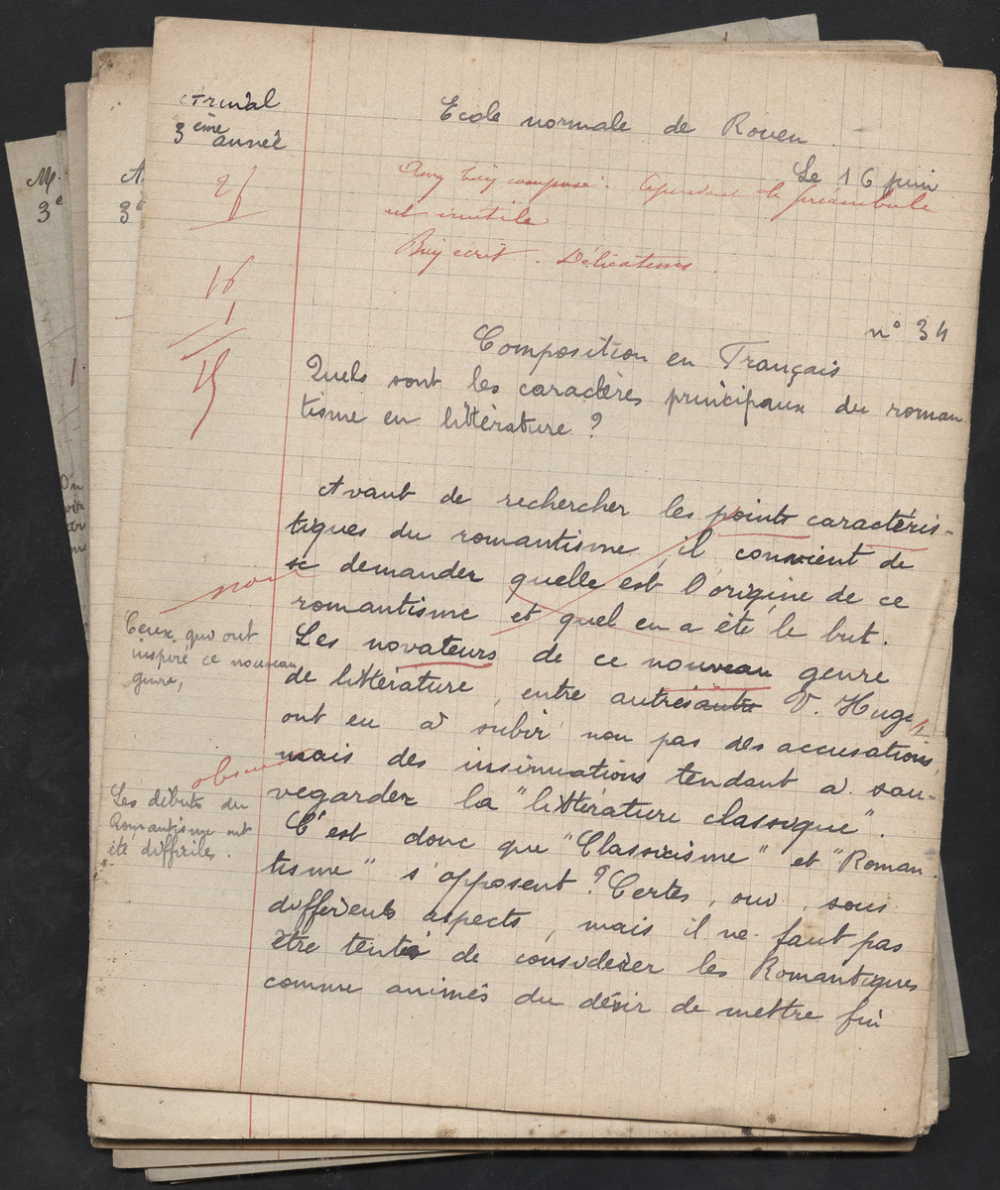 3ème
année
Ecole normale de Rouen
Le 16 juin
bien composé. Cependant le préambule
est inutile
Bien écrit. Délicatesses
16
1
15
n° 34
Composition en Français
Quels sont les caractères principaux du roman
tisme en littérature ?
Avant de rechercher les points caractéris-
tiques du romantisme, il convient de
se demander quelle est l'origine de ce
romantisme et quel en a été le but.
Les novateurs de ce nouveau genre
de littérature, entre autres autre V. Hugo,
ont eu à subir non pas des accusations,
mais des insinuations tendant à sau-
vegarder la "littérature classique".
C'est donc que "Classicisme" et "Roman
tisme" s'opposent ? Certes, oui, sous
différents aspects, mais il ne faut pas
être tenté de considérer les Romantiques
comme animés du désir de mettre fin
non
Ceux qui ont
inspiré ce nouveau
genre,
obscur
Les débuts du
Romantisme ont
été difficiles.
M.
3e
A.
3e